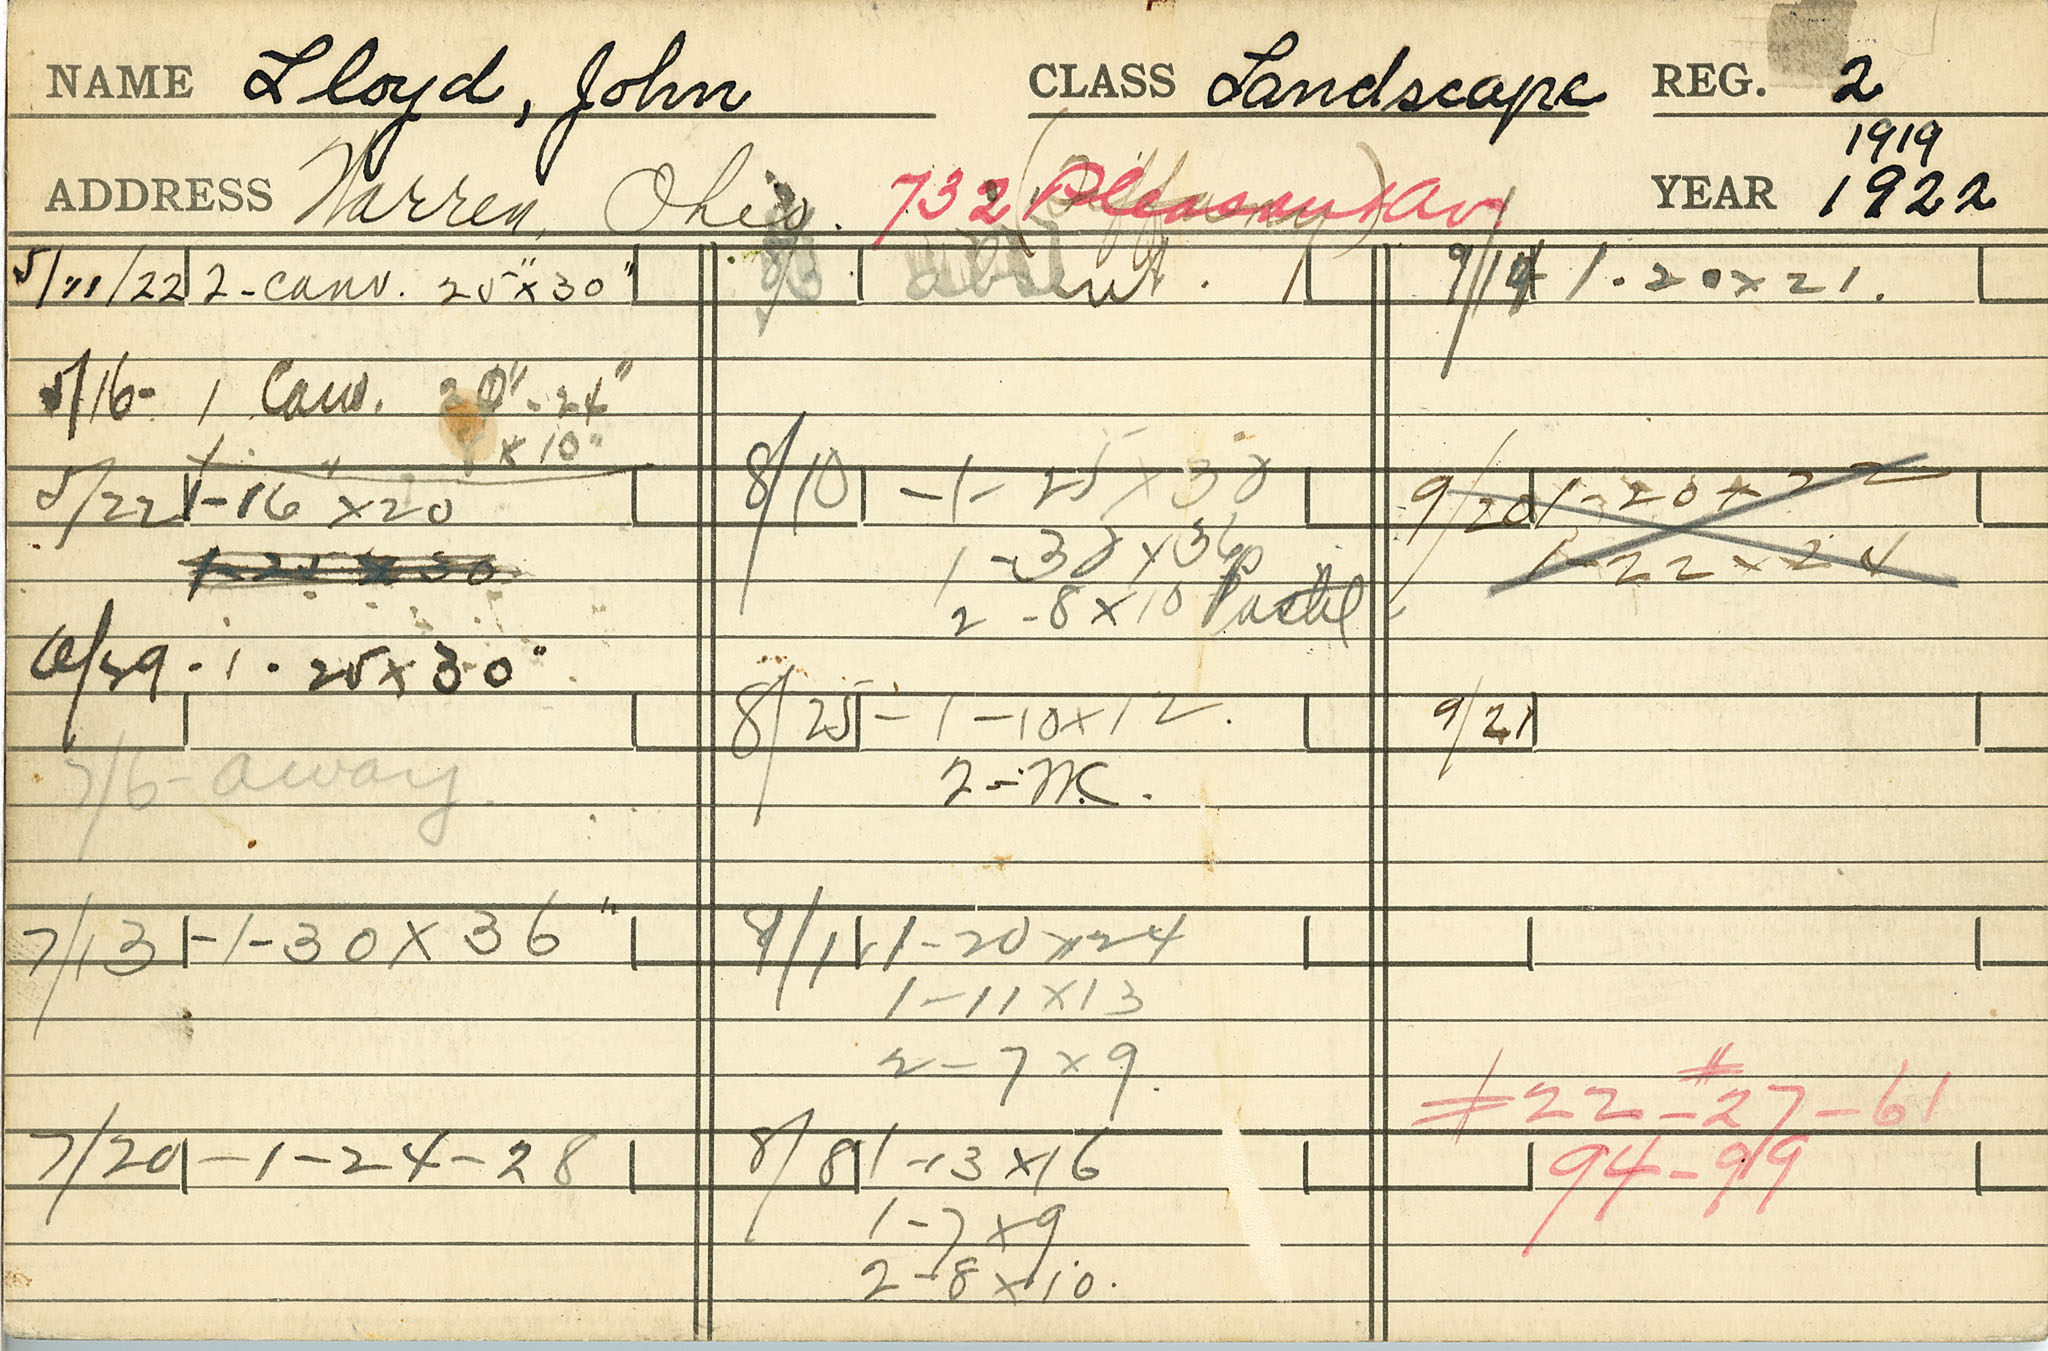 NAME Lloyd, John CLASS Landscape REG. 2
1919
ADDRESS Warren, Ohio. 732 Pleasant Av YEAR 1922
5/11/22 2-canv. 25"x30"
5/16- 1 Canv. 20"-24"
1 " 8 x 10"
5/22 1-16 x20
1-25 x 30
6/29 . 1 . 25x30"
7/6- away.
7/13 -1-30 x 36"
7/20 -1-24-28
8/3 absent.
8/10 -1-25 x 30
1-30 x36
2 -8 x 10 Pastel
8/25 -1-10x12.
2-
8/1 1-20 x24
1-11 x13
2-7 x 9.
8/8 1-13 x16
1-7 x9
2-8 x 10.
9/14 1.20x21.
9/20 1-20 x 22
1-22 x 24
9/21
#22-#27-61
94-99